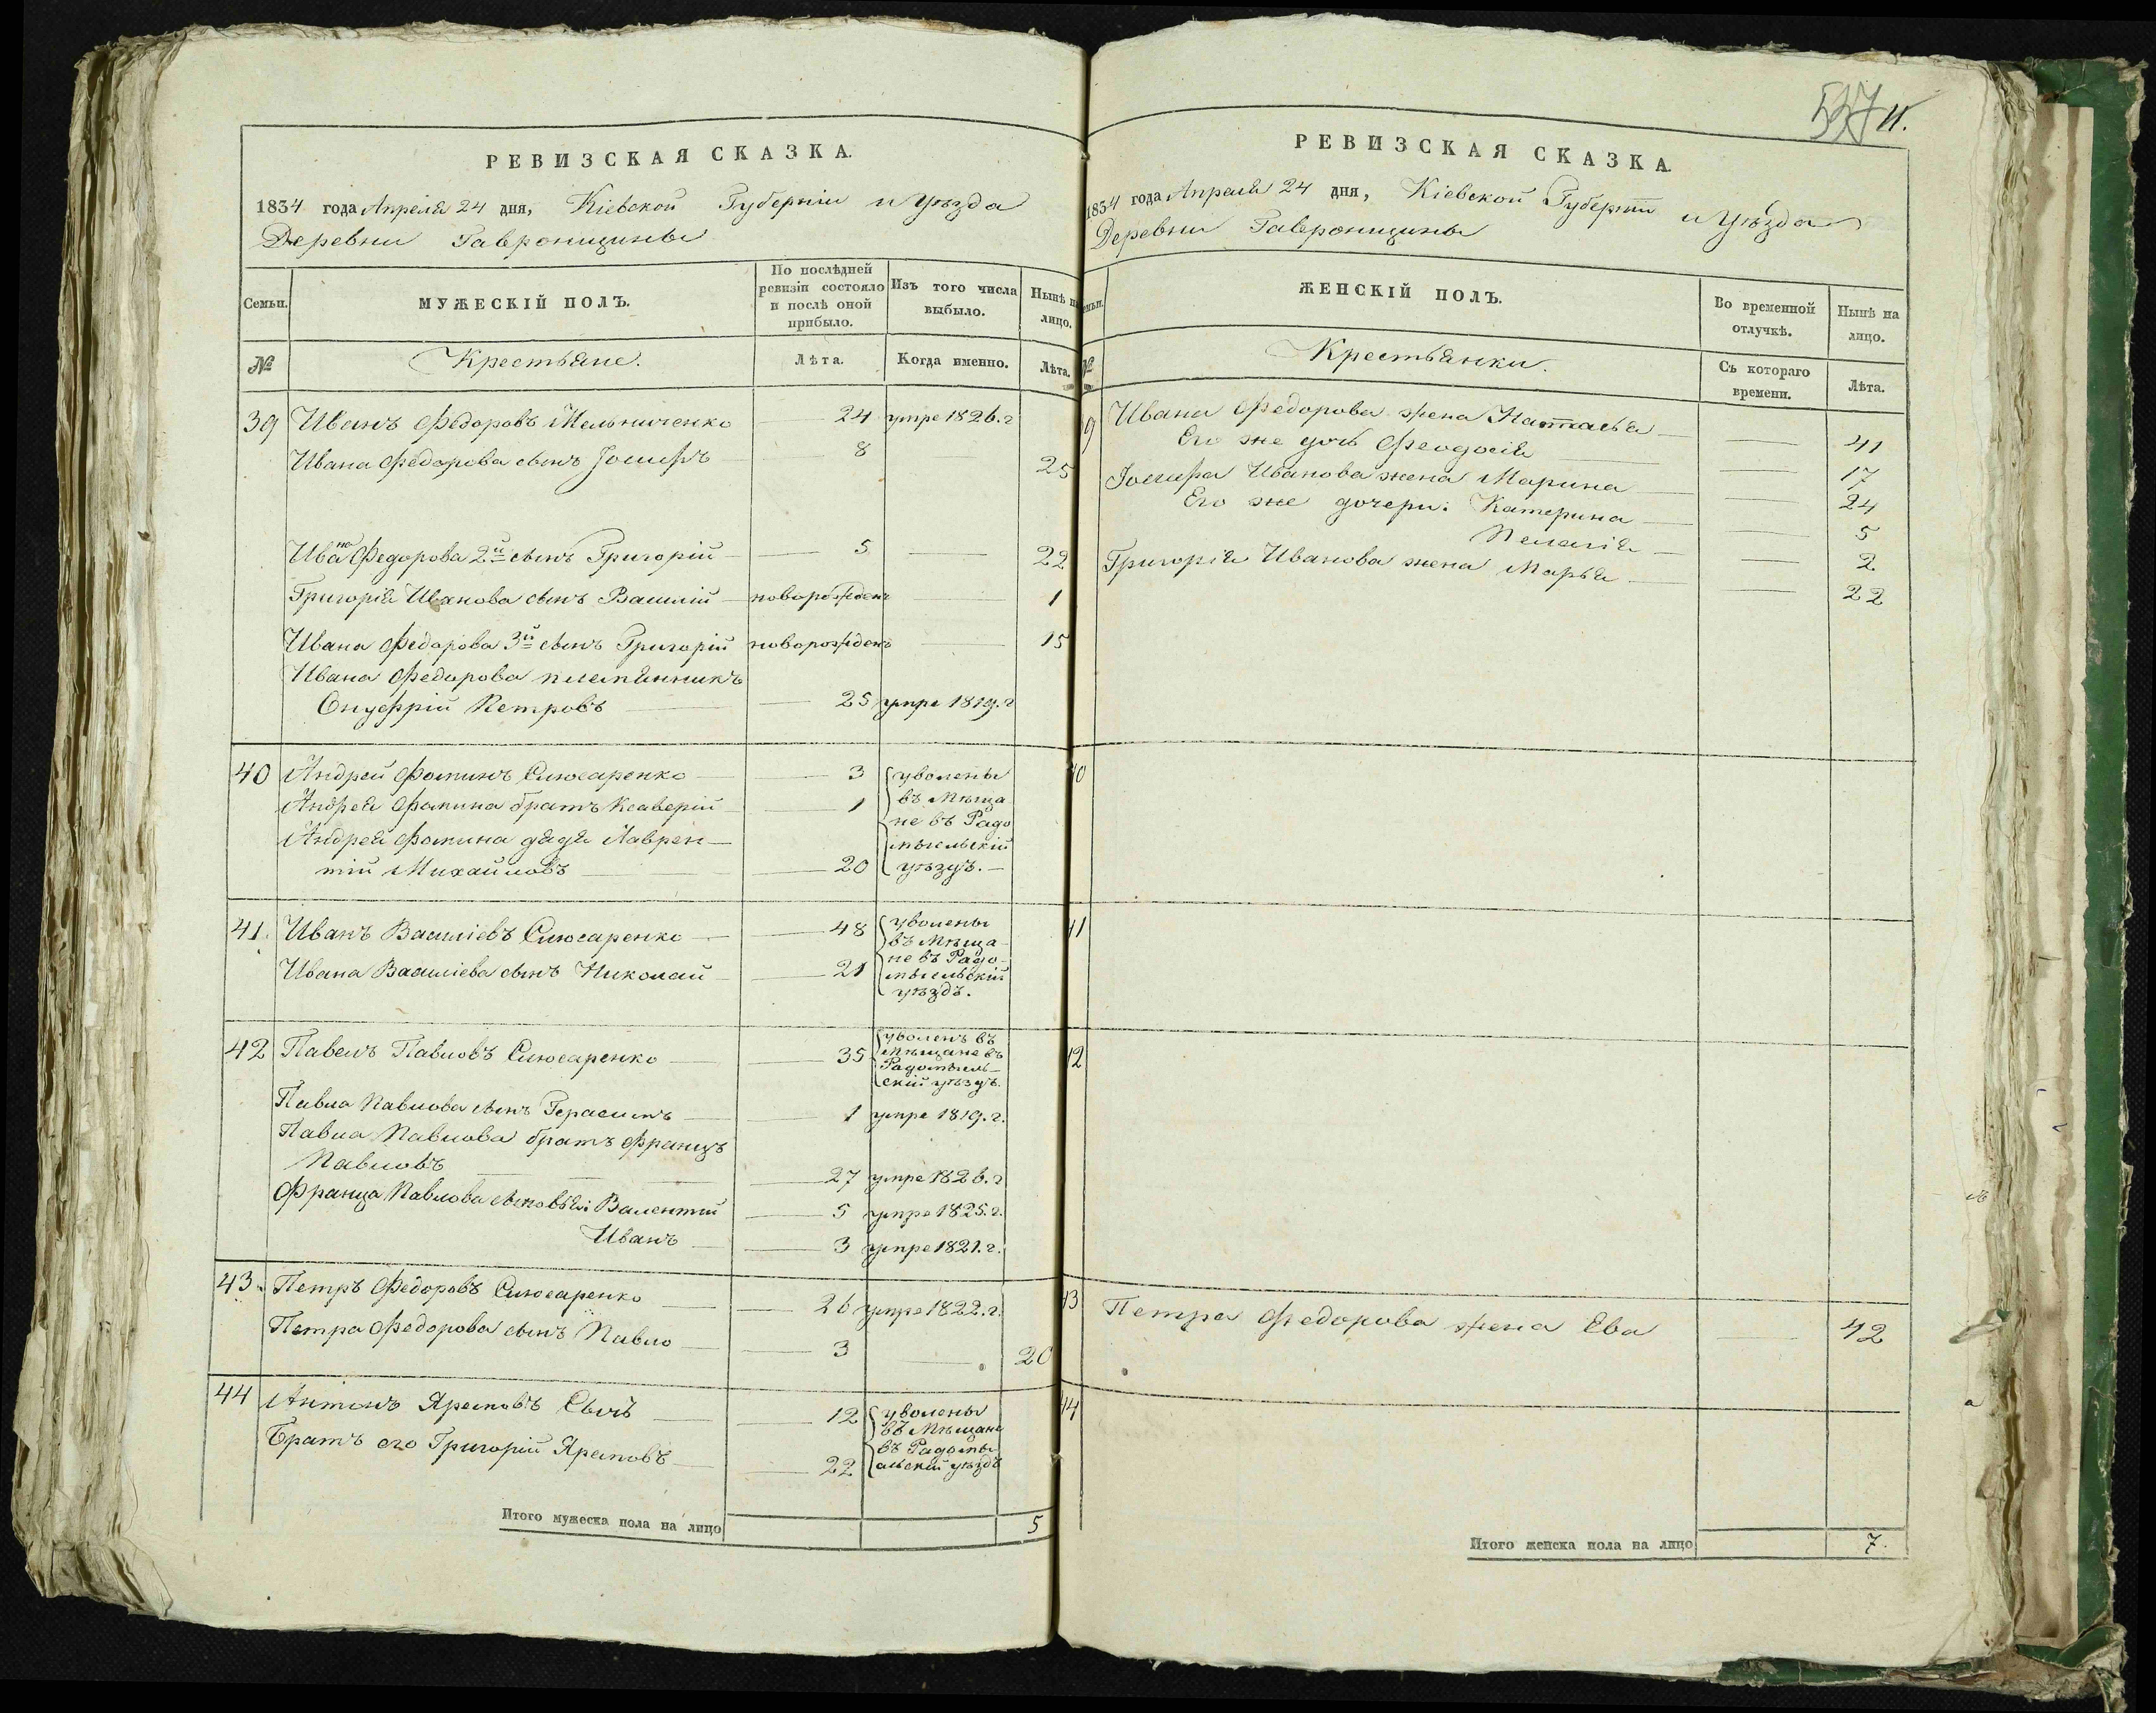 РЕВИЗСКАЯ СКАЗКА.
1834 года Апреля 24 дня, Кіевской Губерніи и Уѣзда
Деревни Гавронщины
Семьи. МУЖЕСКІЙ ПОЛЪ. По послѣдней ревизіи состояло и послѣ оной прибыло. Изъ того числа выбыло. Нынѣ на лицо.
№ Крестьяне. Лѣта. Когда именно. Лѣта.
39 Иванъ Федоровъ Мельниченко 24 умре 1826. г
Ивана Федорова сынъ Іосифъ 8 25
Ивана Федорова 2й сынъ Григорій 5 22
Григорія Иванова сынъ Василій новорожденъ 1
Ивана Федорова 3й сынъ Григорій новорожденъ 15
Ивана Федорова племянникъ
Онуфрій Петровъ 25 умре 1819. г
40 Андрей Фоминъ Слюсаренко 3 уволены
Андрея Фомина братъ Ксаверій 1 въ Мѣща
не въ Радо
Андрея Фомина дядя Лаврен- мысльскій
тій Михайловъ 20 уѣздъ.
41. Иванъ Василіевъ Слюсаренко 48 уволены
въ Мѣща-
Ивана Василіева сынъ Николай 21 не въ Радо-
мысльскій
уѣздъ.
42 Павелъ Павловъ Слюсаренко 35 уволенъ въ
Мѣщане въ
Радомысль-
скій уѣздъ.
Павла Павлова сынъ Герасимъ 1 умре 1819. г.
Павла Павлова братъ Францъ
Павловъ 27 умре 1826. г
Франца Павлова сыновья: Валентій 5 умре 1825. г.
Иванъ 3 умре 1821. г.
43. Петръ Федоровъ Слюсаренко 26 умре 1822. г.
Петра Федорова сынъ Павло 3 20
44 Антонъ Яремовъ Сычъ 12 уволены
въ Мѣщане
Братъ его Григорій Яремовъ 22 въ Радомы
сльскій уѣздъ
Итого мужеска пола на лицо 5
11.
РЕВИЗСКАЯ СКАЗКА.
1834 года Апреля 24 дня, Кіевской Губерніи и Уѣзда
Деревни Гавронщины
ЖЕНСКІЙ ПОЛЪ. Во временной отлучкѣ. Нынѣ на лицо.
№ Крестьянки. Съ котораго времени. Лѣта.
9 Ивана Федорова жена Наталья 41
Его же дочь Феодосія 17
Іосифа Иванова жена Марина 24
Его же дочери: Катерина 5
Пелагія 2
Григорія Иванова жена Марья 22
40
41
42
43 Петра Федорова жена Ева 42
44
Итого женска пола на лицо 7.